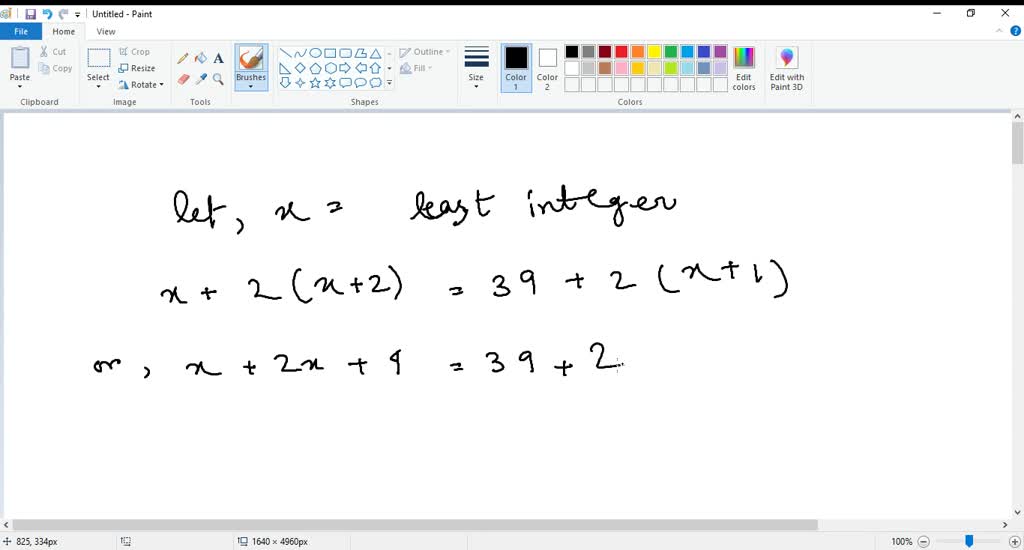 Untitled - Paint
File Home View
Paste
Cut
Copy
Clipboard
Select
Crop
Resize
Rotate
Image
A
Tools
Brushes
Outline
Fill
Shapes
Size
Color 1
Color 2
Edit colors
Colors
Edit with Paint 3D
let, x = least integer
x + 2 (x+2) = 39 + 2 (x+1)
or, x + 2x + 4 = 39 + 2
825, 334px
1640 × 4960px
100%